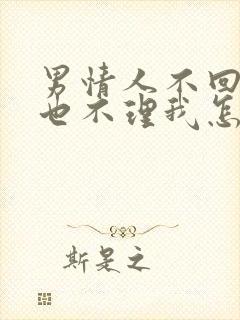 男情人不回
也不理我怎
斯是之